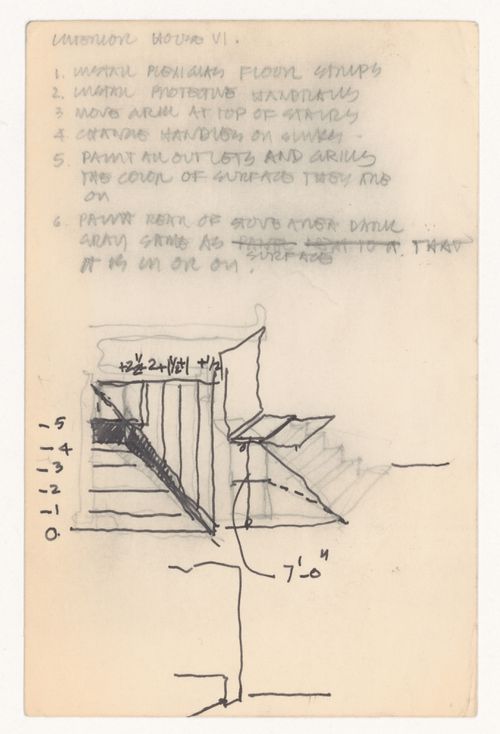 INTERIOR HOUSE VI.
1. INSTALL PLEXIGLAS FLOOR STRIPS
2. INSTALL PROTECTIVE HANDRAILS
3 MOVE GRILL AT TOP OF STAIRS
4 CHANGE HANDLES ON SINKS
5. PAINT ALL OUTLETS AND GRILLS
THE COLOR OF SURFACE THEY ARE
ON
6. PAINT REAR OF STOVE AREA DARK
GRAY SAME AS PANEL THAT
SURFACE
IT IS IN OR ON.
+2 1/2 2 +1 1/2 +1 +1/2
-5
-4
-3
-2
-1
0.
7'-0"